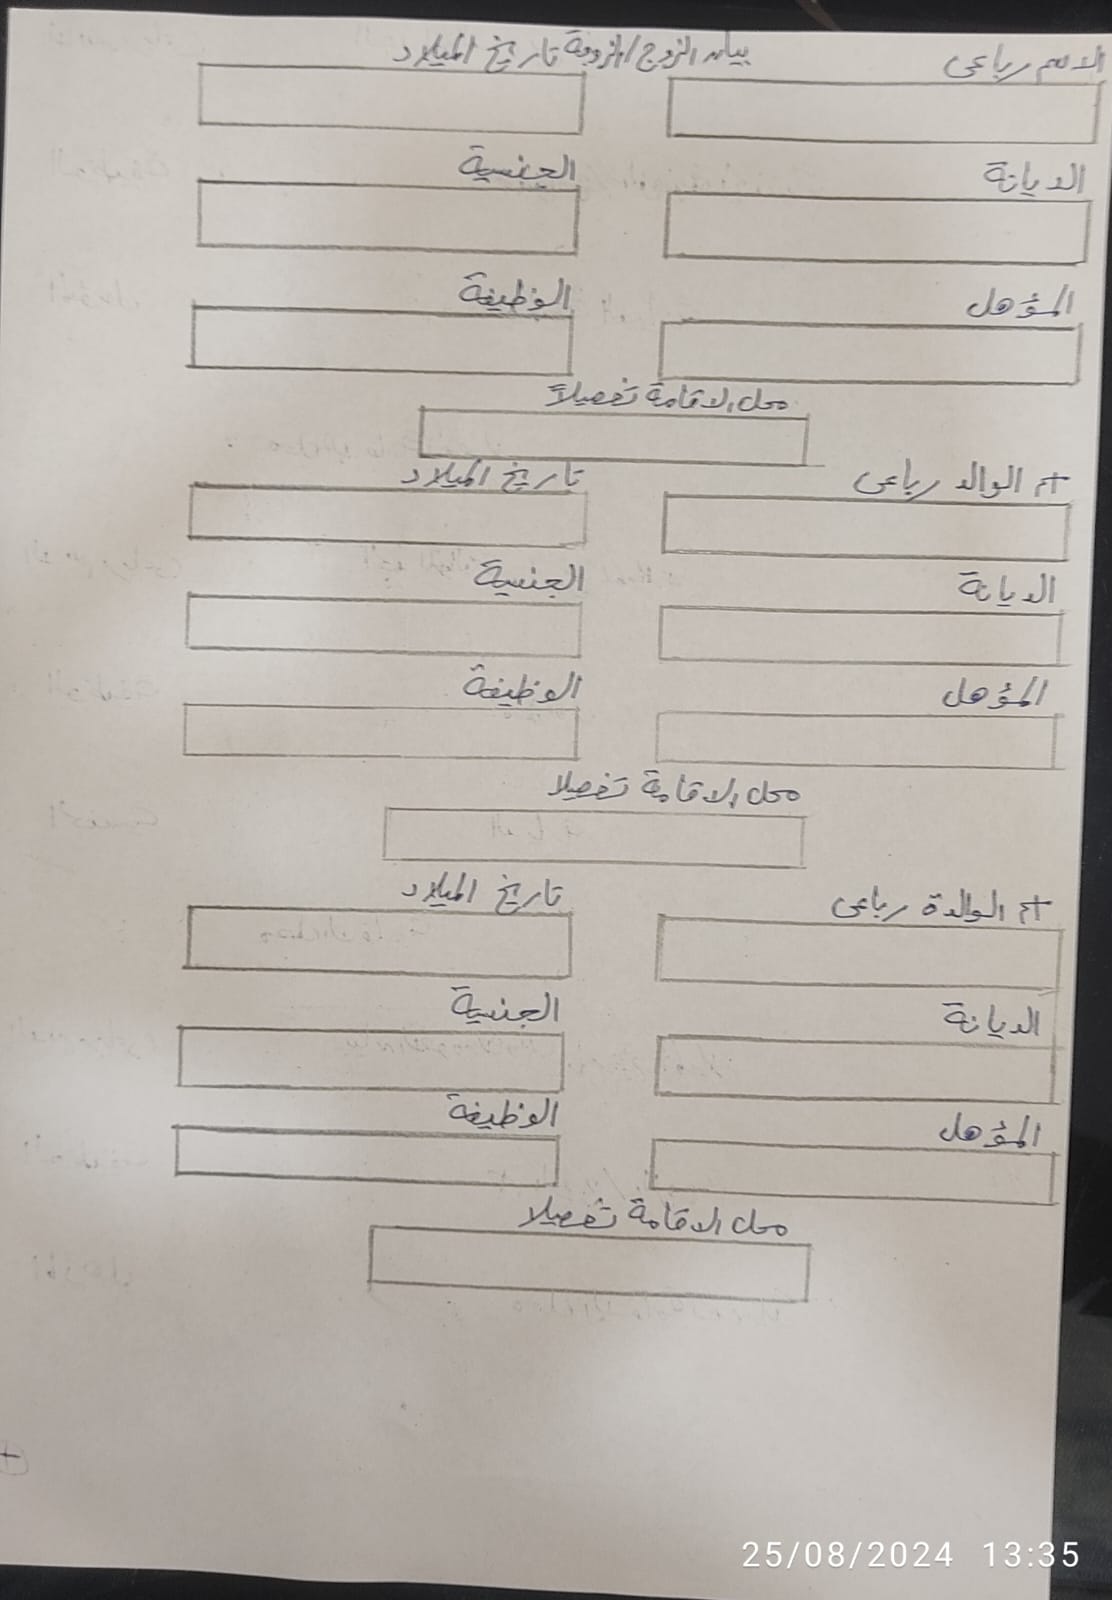 بيان الزوج/الزوجة
الاسم رباعى تاريخ الميلاد
الديانة الجنسية
المؤهل الوظيفة
محل الاقامة تفصيلاً
الوالد رباعى تاريخ الميلاد
الديانة الجنسية
المؤهل الوظيفة
محل الاقامة تفصيلا
الوالدة رباعى تاريخ الميلاد
الديانة الجنسية
المؤهل الوظيفة
محل الاقامة تفصيلا
25/08/2024 13:35